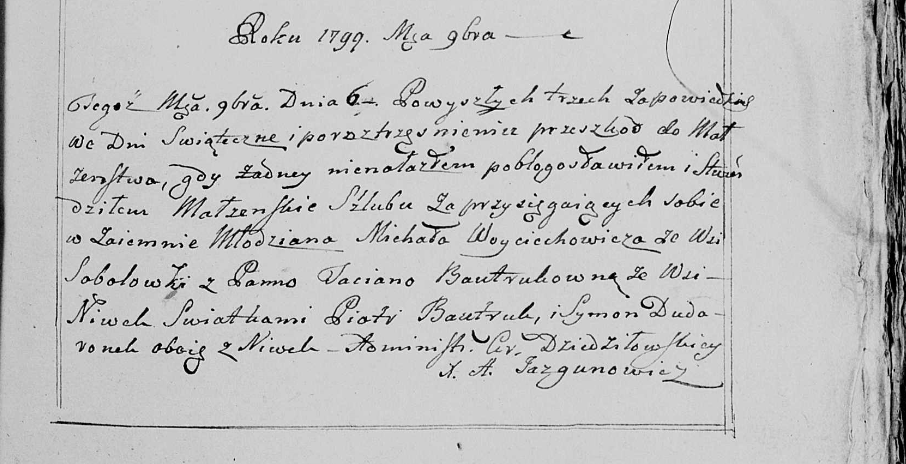 Roku 1799. Mca 9bra
Tegoż Mca. 9bra. Dnia 6. Powyszłych trzech Zapowiedzią
we Dni Swiąteczne i poroztrzęsnieniu przeszkod do Mał
zenstwa, gdy żadney nienalazłem pobłogosławiłem i Stwier
dziłem Małzenskie Szlubu Zaprzysięgaiących sobie
w Zaiemnie Młodziana Michała Woyciechowicza ze Wsi
Sobolowki z Panno Taciano Bautrukowną ze Wsi
Niwek Swiatkami Piotr Bautruk, i Symon Duda-
ronek oboie z Niwek - Administr. Cer. Dziedziłowskiey
X. A. Jazgunowicz